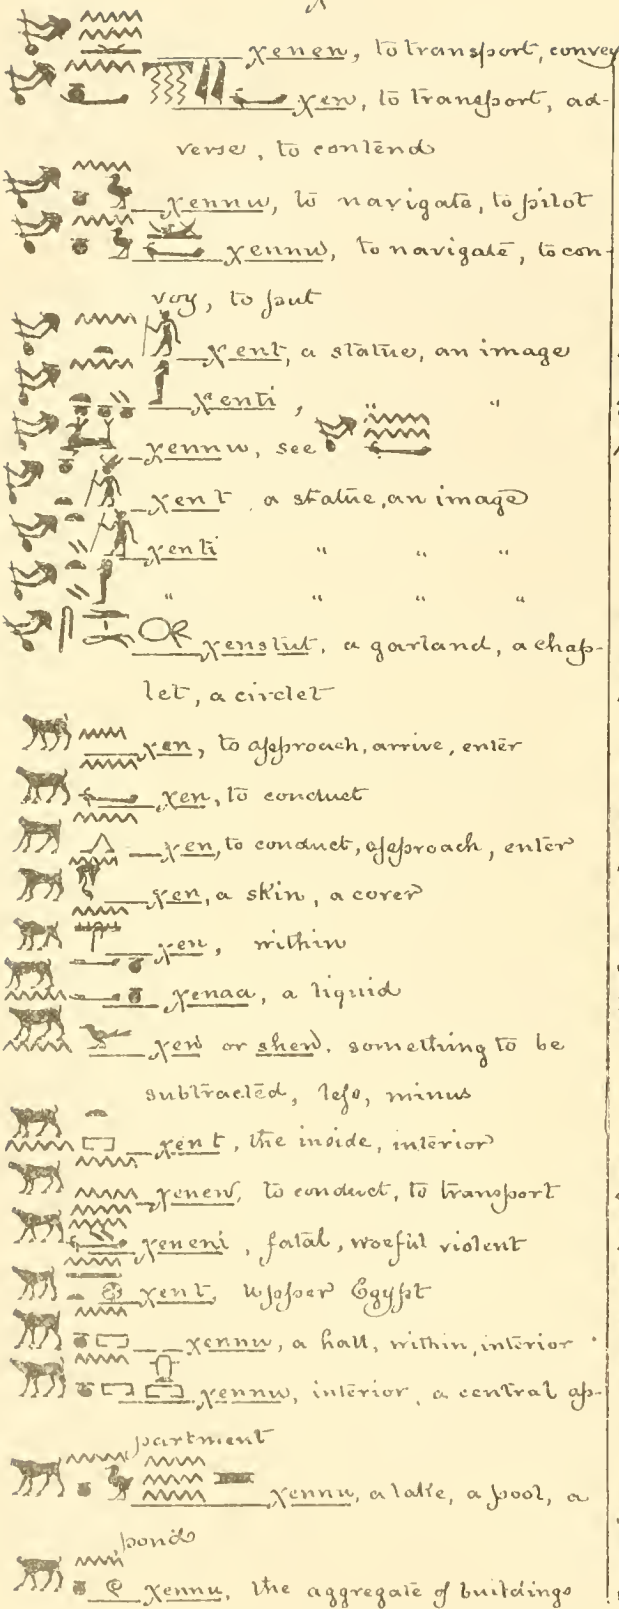 χenen, to transport, convey
χen, to transport, ad-
verse, to contend
χennu, to navigate, to pilot
χennu, to navigate, to con-
voy, to put
χent, a statue, an image
χenti, " "
χennu, see
χent a statue, an image
χenti " " "
" " " "
χenstut, a garland, a chap-
let, a circlet
χen, to approach, arrive, enter
χen, to conduct
χen, to conduct, approach, enter
χen, a skin, a cover
χen, within
χenaa, a liquid
χen or shen, something to be
subtracted, less, minus
χent, the inside, interior
χenen, to conduct, to transport
χeneni, fatal, woeful violent
χent, Upper Egypt
χennu, a hall, within, interior
χennu, interior, a central ap-
partment
χennu, a lake, a pool, a
pond
χennu, the aggregate of buildings